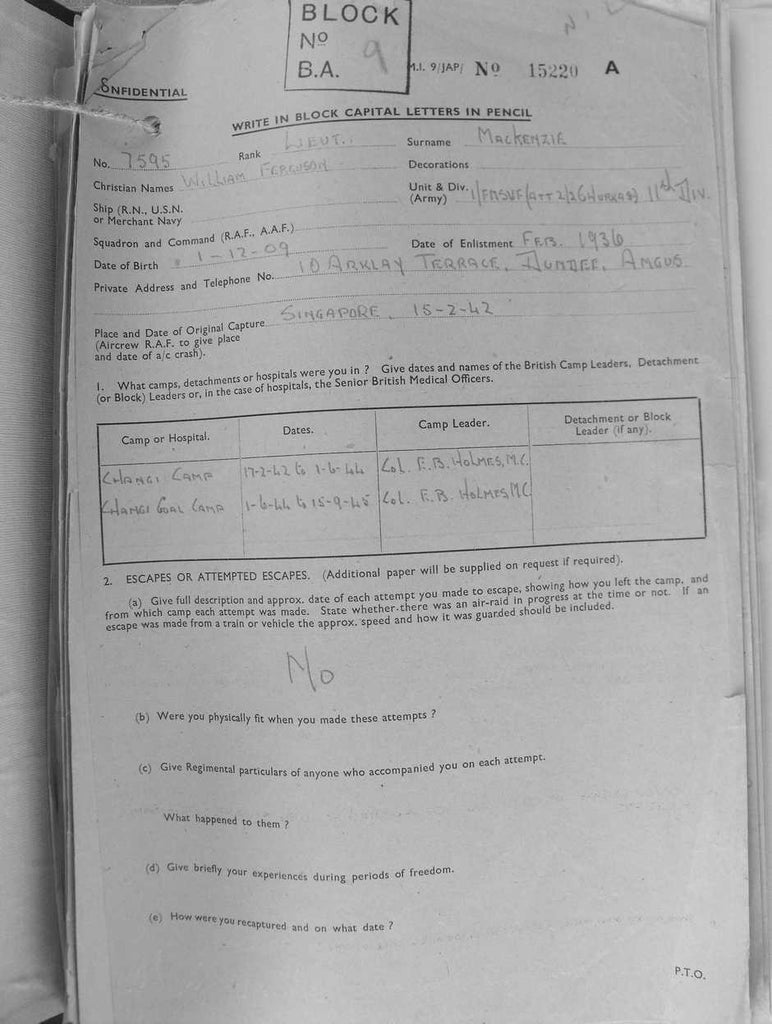 BLOCK
Nº
B.A. 9
M.I. 9/JAP/ Nº 15220 A
ONFIDENTIAL
WRITE IN BLOCK CAPITAL LETTERS IN PENCIL
No. 7595 Rank LIEUT. Surname MACKENZIE
Christian Names WILLIAM FERGUSON Decorations
Ship (R.N., U.S.N. or Merchant Navy Unit & Div. (Army) 1/FMSVF (ATT 2/2 GHURKAS) 11th DIV.
Squadron and Command (R.A.F., A.A.F.)
Date of Birth 1-12-09 Date of Enlistment FEB. 1936
Private Address and Telephone No. 10 ARKLAY TERRACE, DUNDEE, ANGUS
Place and Date of Original Capture SINGAPORE, 15-2-42
(Aircrew R.A.F. to give place
and date of a/c crash).
1. What camps, detachments or hospitals were you in ? Give dates and names of the British Camp Leaders, Detachment
(or Block) Leaders or, in the case of hospitals, the Senior British Medical Officers.
Camp or Hospital. Dates. Camp Leader. Detachment or Block Leader (if any).
CHANGI CAMP 17-2-42 to 1-6-44 COL. E.B. HOLMES, M.C.
CHANGI GOAL CAMP 1-6-44 to 15-9-45 COL. E.B. HOLMES, MC
2. ESCAPES OR ATTEMPTED ESCAPES. (Additional paper will be supplied on request if required).
(a) Give full description and approx. date of each attempt you made to escape, showing how you left the camp, and
from which camp each attempt was made. State whether there was an air-raid in progress at the time or not. If an
escape was made from a train or vehicle the approx. speed and how it was guarded should be included.
No
(b) Were you physically fit when you made these attempts ?
(c) Give Regimental particulars of anyone who accompanied you on each attempt.
What happened to them ?
(d) Give briefly your experiences during periods of freedom.
(e) How were you recaptured and on what date ?
P.T.O.